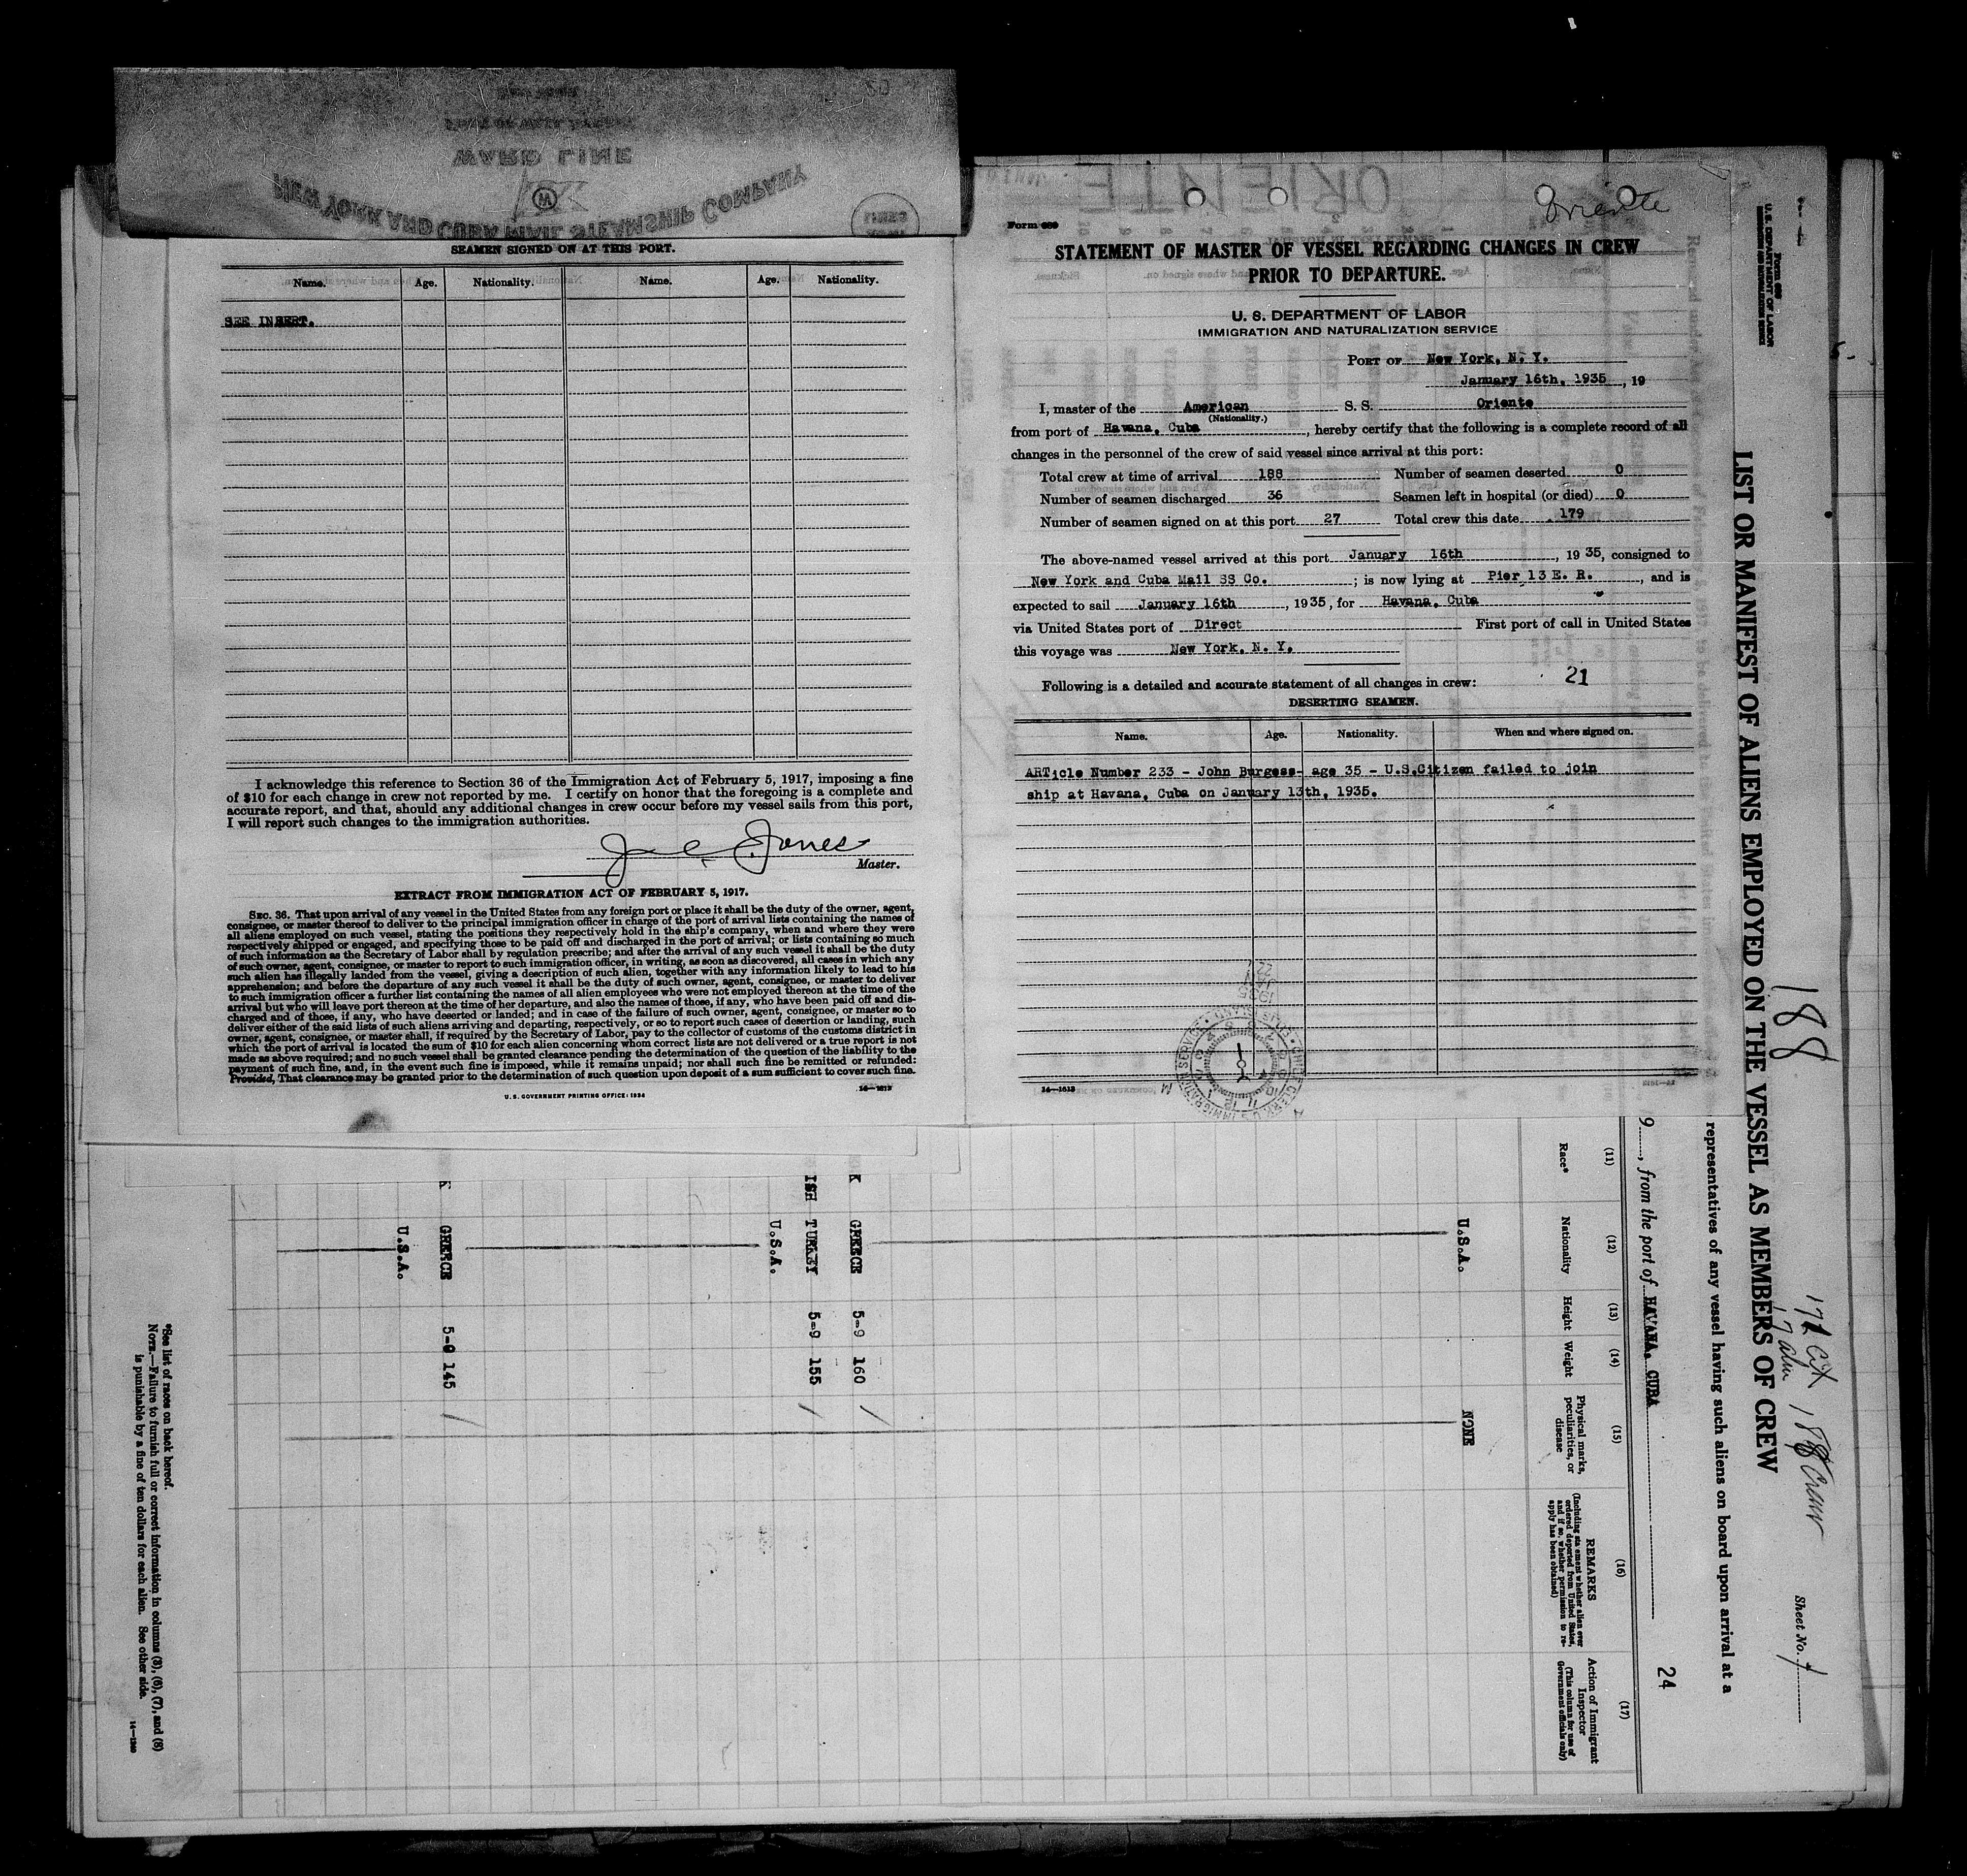 WARD LINE
NEW YORK AND CUBA MAIL STEAMSHIP COMPANY
SEAMEN SIGNED ON AT THIS PORT.
Name. Age. Nationality. Name. Age. Nationality.
SEE INSERT.
I acknowledge this reference to Section 36 of the Immigration Act of February 5, 1917, imposing a fine
of $10 for each change in crew not reported by me. I certify on honor that the foregoing is a complete and
accurate report, and that, should any additional changes in crew occur before my vessel sails from this port,
I will report such changes to the immigration authorities.
Jones
Master.
EXTRACT FROM IMMIGRATION ACT OF FEBRUARY 5, 1917.
SEC. 36. That upon arrival of any vessel in the United States from any foreign port or place it shall be the duty of the owner, agent,
consignee, or master thereof to deliver to the principal immigration officer in charge of the port of arrival lists containing the names of
all aliens employed on such vessel, stating the positions they respectively hold in the ship's company, when and where they were
respectively shipped or engaged, and specifying those to be paid off and discharged in the port of arrival; or lists containing so much
of such information as the Secretary of Labor shall by regulation prescribe; and after the arrival of any such vessel it shall be the duty
of such owner, agent, consignee, or master to report to such immigration officer, in writing, as soon as discovered, all cases in which any
such alien has illegally landed from the vessel, giving a description of such alien, together with any information likely to lead to his
apprehension; and before the departure of any such vessel it shall be the duty of such owner, agent, consignee, or master to deliver
to such immigration officer a further list containing the names of all alien employees who were not employed thereon at the time of the
arrival but who will leave port thereon at the time of her departure, and also the names of those, if any, who have been paid off and dis-
charged and of those, if any, who have deserted or landed; and in case of the failure of such owner, agent, consignee, or master so to
deliver either of the said lists of such aliens arriving and departing, respectively, or so to report such cases of desertion or landing, such
owner, agent, consignee, or master shall, if required by the Secretary of Labor, pay to the collector of customs of the customs district in
which the port of arrival is located the sum of $10 for each alien concerning whom correct lists are not delivered or a true report is not
made as above required; and no such vessel shall be granted clearance pending the determination of the question of the liability to the
payment of such fine, and, in the event such fine is imposed, while it remains unpaid; nor shall such fine be remitted or refunded:
Provided, That clearance may be granted prior to the determination of such question upon deposit of a sum sufficient to cover such fine.
U. S. GOVERNMENT PRINTING OFFICE: 1934
16—1613
Oriente
Form 689
STATEMENT OF MASTER OF VESSEL REGARDING CHANGES IN CREW
PRIOR TO DEPARTURE.
U. S. DEPARTMENT OF LABOR
IMMIGRATION AND NATURALIZATION SERVICE
PORT OF New York, N. Y.
January 16th, 1935, 19
I, master of the American S. S. Oriente
(Nationality.)
from port of Havana, Cuba, hereby certify that the following is a complete record of all
changes in the personnel of the crew of said vessel since arrival at this port:
Total crew at time of arrival 188 Number of seamen deserted 0
Number of seamen discharged 36 Seamen left in hospital (or died) 0
Number of seamen signed on at this port 27 Total crew this date 179
The above-named vessel arrived at this port January 16th, 1935, consigned to
New York and Cuba Mail SS Co.; is now lying at Pier 13 E. R., and is
expected to sail January 16th, 1935, for Havana, Cuba
via United States port of Direct First port of call in United States
this voyage was New York, N. Y.
Following is a detailed and accurate statement of all changes in crew: 21
DESERTING SEAMEN.
Name. Age. Nationality. When and where signed on.
ARTicle Number 233 - John Burgess- age 35 - U.S.Citizen failed to join
ship at Havana, Cuba on January 13th, 1935.
16—1613
U. S. DEPARTMENT OF LABOR
LIST OR MANIFEST OF ALIENS EMPLOYED ON THE VESSEL AS MEMBERS OF CREW
188
188 Crew
Sheet No. 1
representatives of any vessel having such aliens on board upon arrival at a
9, from the port of HAVANA, CUBA
24
(11) (12) (13) (14) (15) (16) (17)
Race* Nationality Height Weight Physical marks, peculiarities, or disease
REMARKS
(Including statement whether alien ever
ordered deported from United States,
and if so, whether permission to re-
apply has been obtained)
Action of Immigrant
Inspector
(This column for use of
Government officials only)
U.S.A. NONE
K GREECE 5-9 160
ISH TURKEY 5-9 155
U.S.A.
K GREECE 5-9 145
U.S.A.
*See list of races on back hereof.
NOTE.—Failure to furnish full or correct information in columns (3), (6), (7), and (8)
is punishable by a fine of ten dollars for each alien. See other side.
14—1240